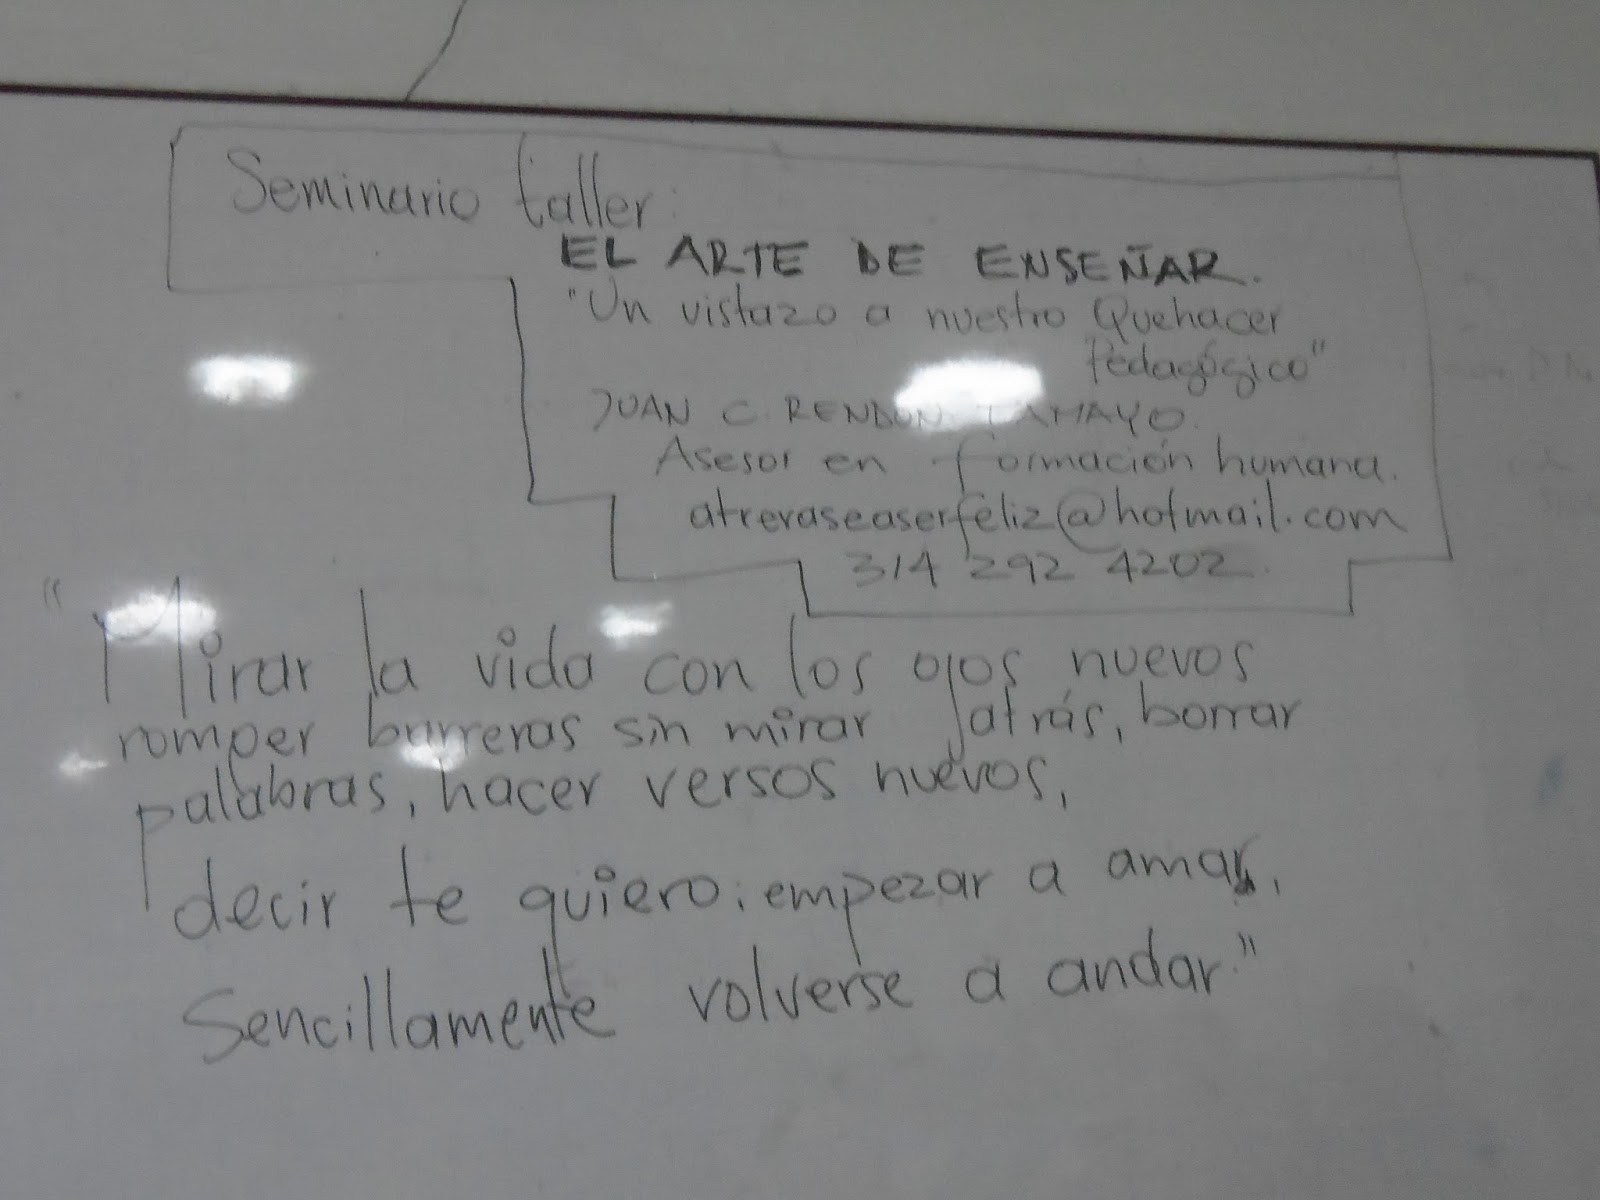 Seminario taller:
EL ARTE DE ENSEÑAR.
"Un vistazo a nuestro Quehacer
Pedagógico"
JUAN C. RENDON TAMAYO.
Asesor en formación humana.
atreverseaserfeliz@hotmail.com
314 292 4202.
"Mirar la vida con los ojos nuevos
romper barreras sin mirar atrás, borrar
palabras, hacer versos nuevos,
decir te quiero; empezar a amar,
Sencillamente volverse a andar."